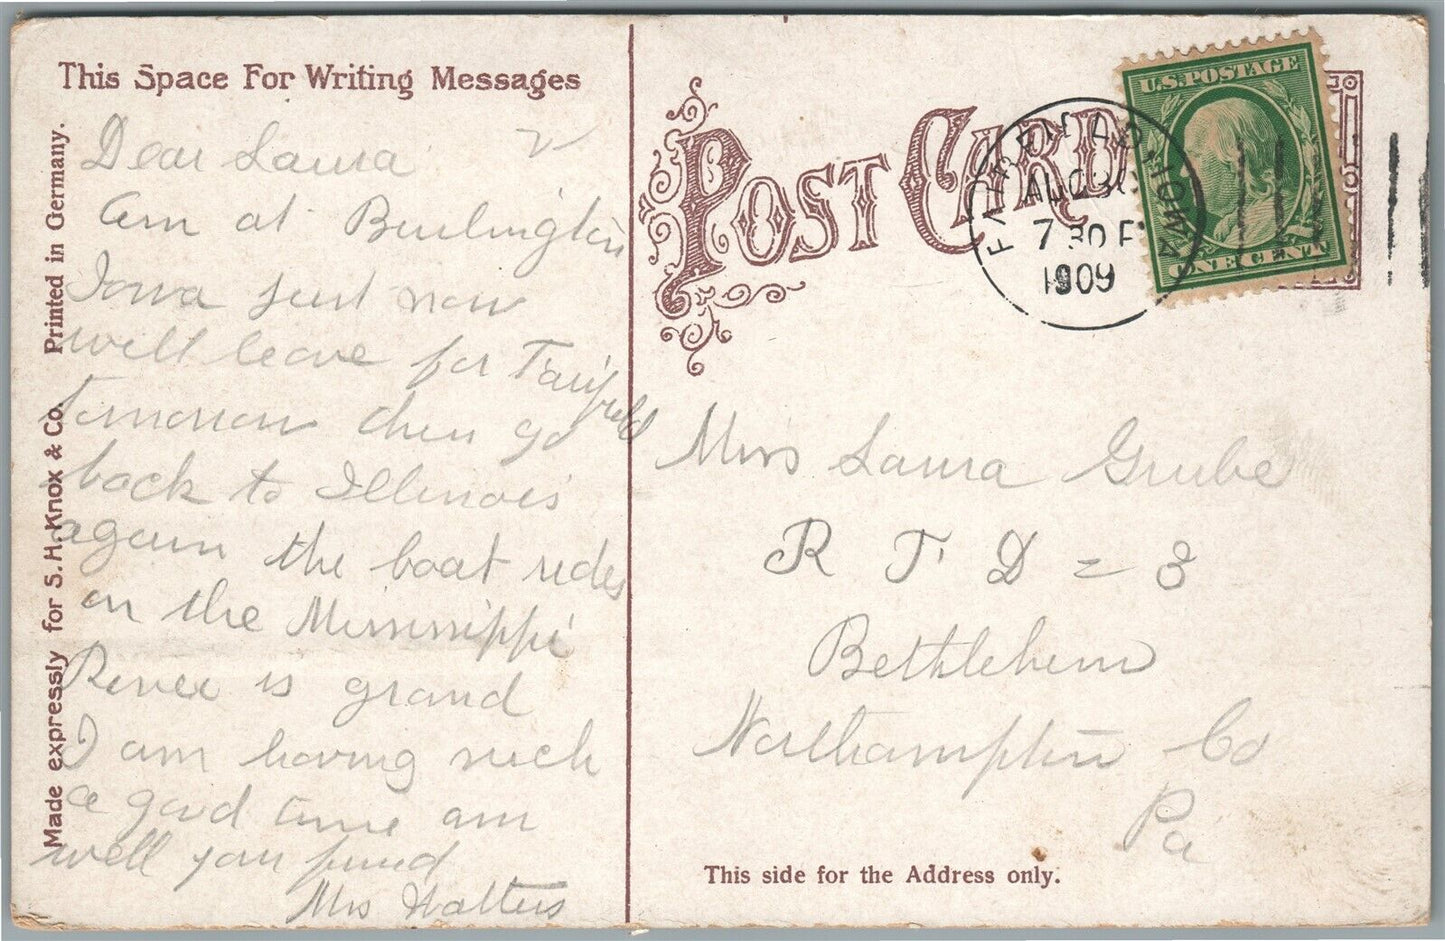 This Space For Writing Messages
Made expressly for S. H. Knox & Co. Printed in Germany.
Dear Laura
am at Burlington
Iowa just now
will leave for Fairfield
tomorrow then go
back to Illinois
again the boat rides
on the Mississippi
River is grand
I am having such
a good time am
well your friend
Mrs Walters
POST CARD
FAIRFIELD
IOWA
AUG 30
7 30 P
1909
U.S. POSTAGE
ONE CENT
Miss Laura Grube
R F D = 3
Bethlehem
Northampton Co
Pa
This side for the Address only.